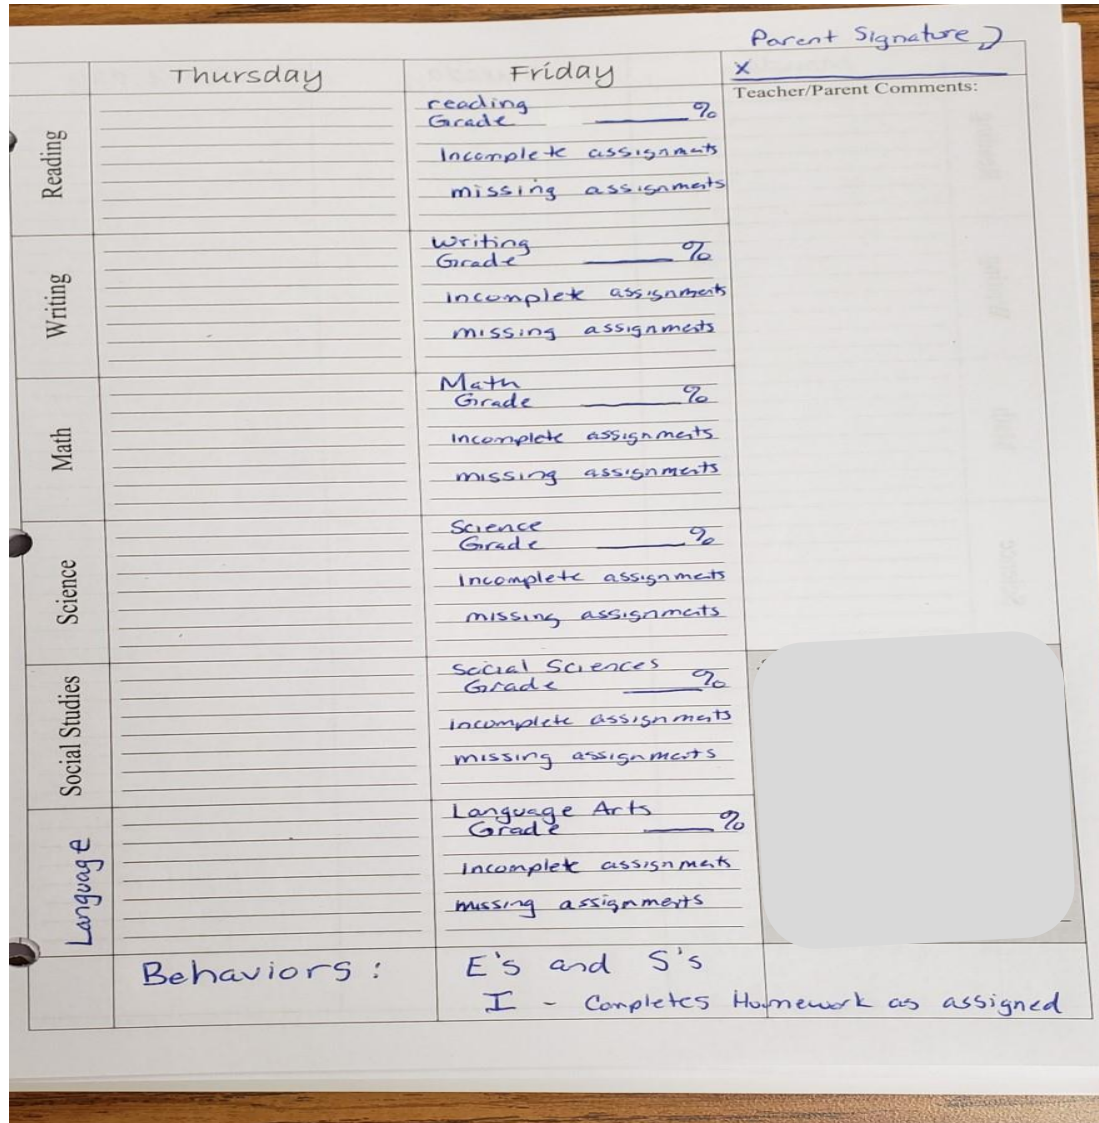 Parent Signature
Thursday
Friday
X
Teacher/Parent Comments:
Reading
reading
Grade %
Incomplete assignments
missing assignments
Writing
Writing
Grade %
incomplete assignments
missing assignments
Math
Math
Grade %
Incomplete assignments
missing assignments
Science
Science
Grade %
Incomplete assignments
missing assignments
Social Studies
Social Sciences
Grade %
incomplete assignments
missing assignments
Language
Language Arts
Grade %
Incomplete assignments
missing assignments
Behaviors: E's and S's
I - Completes Homework as assigned